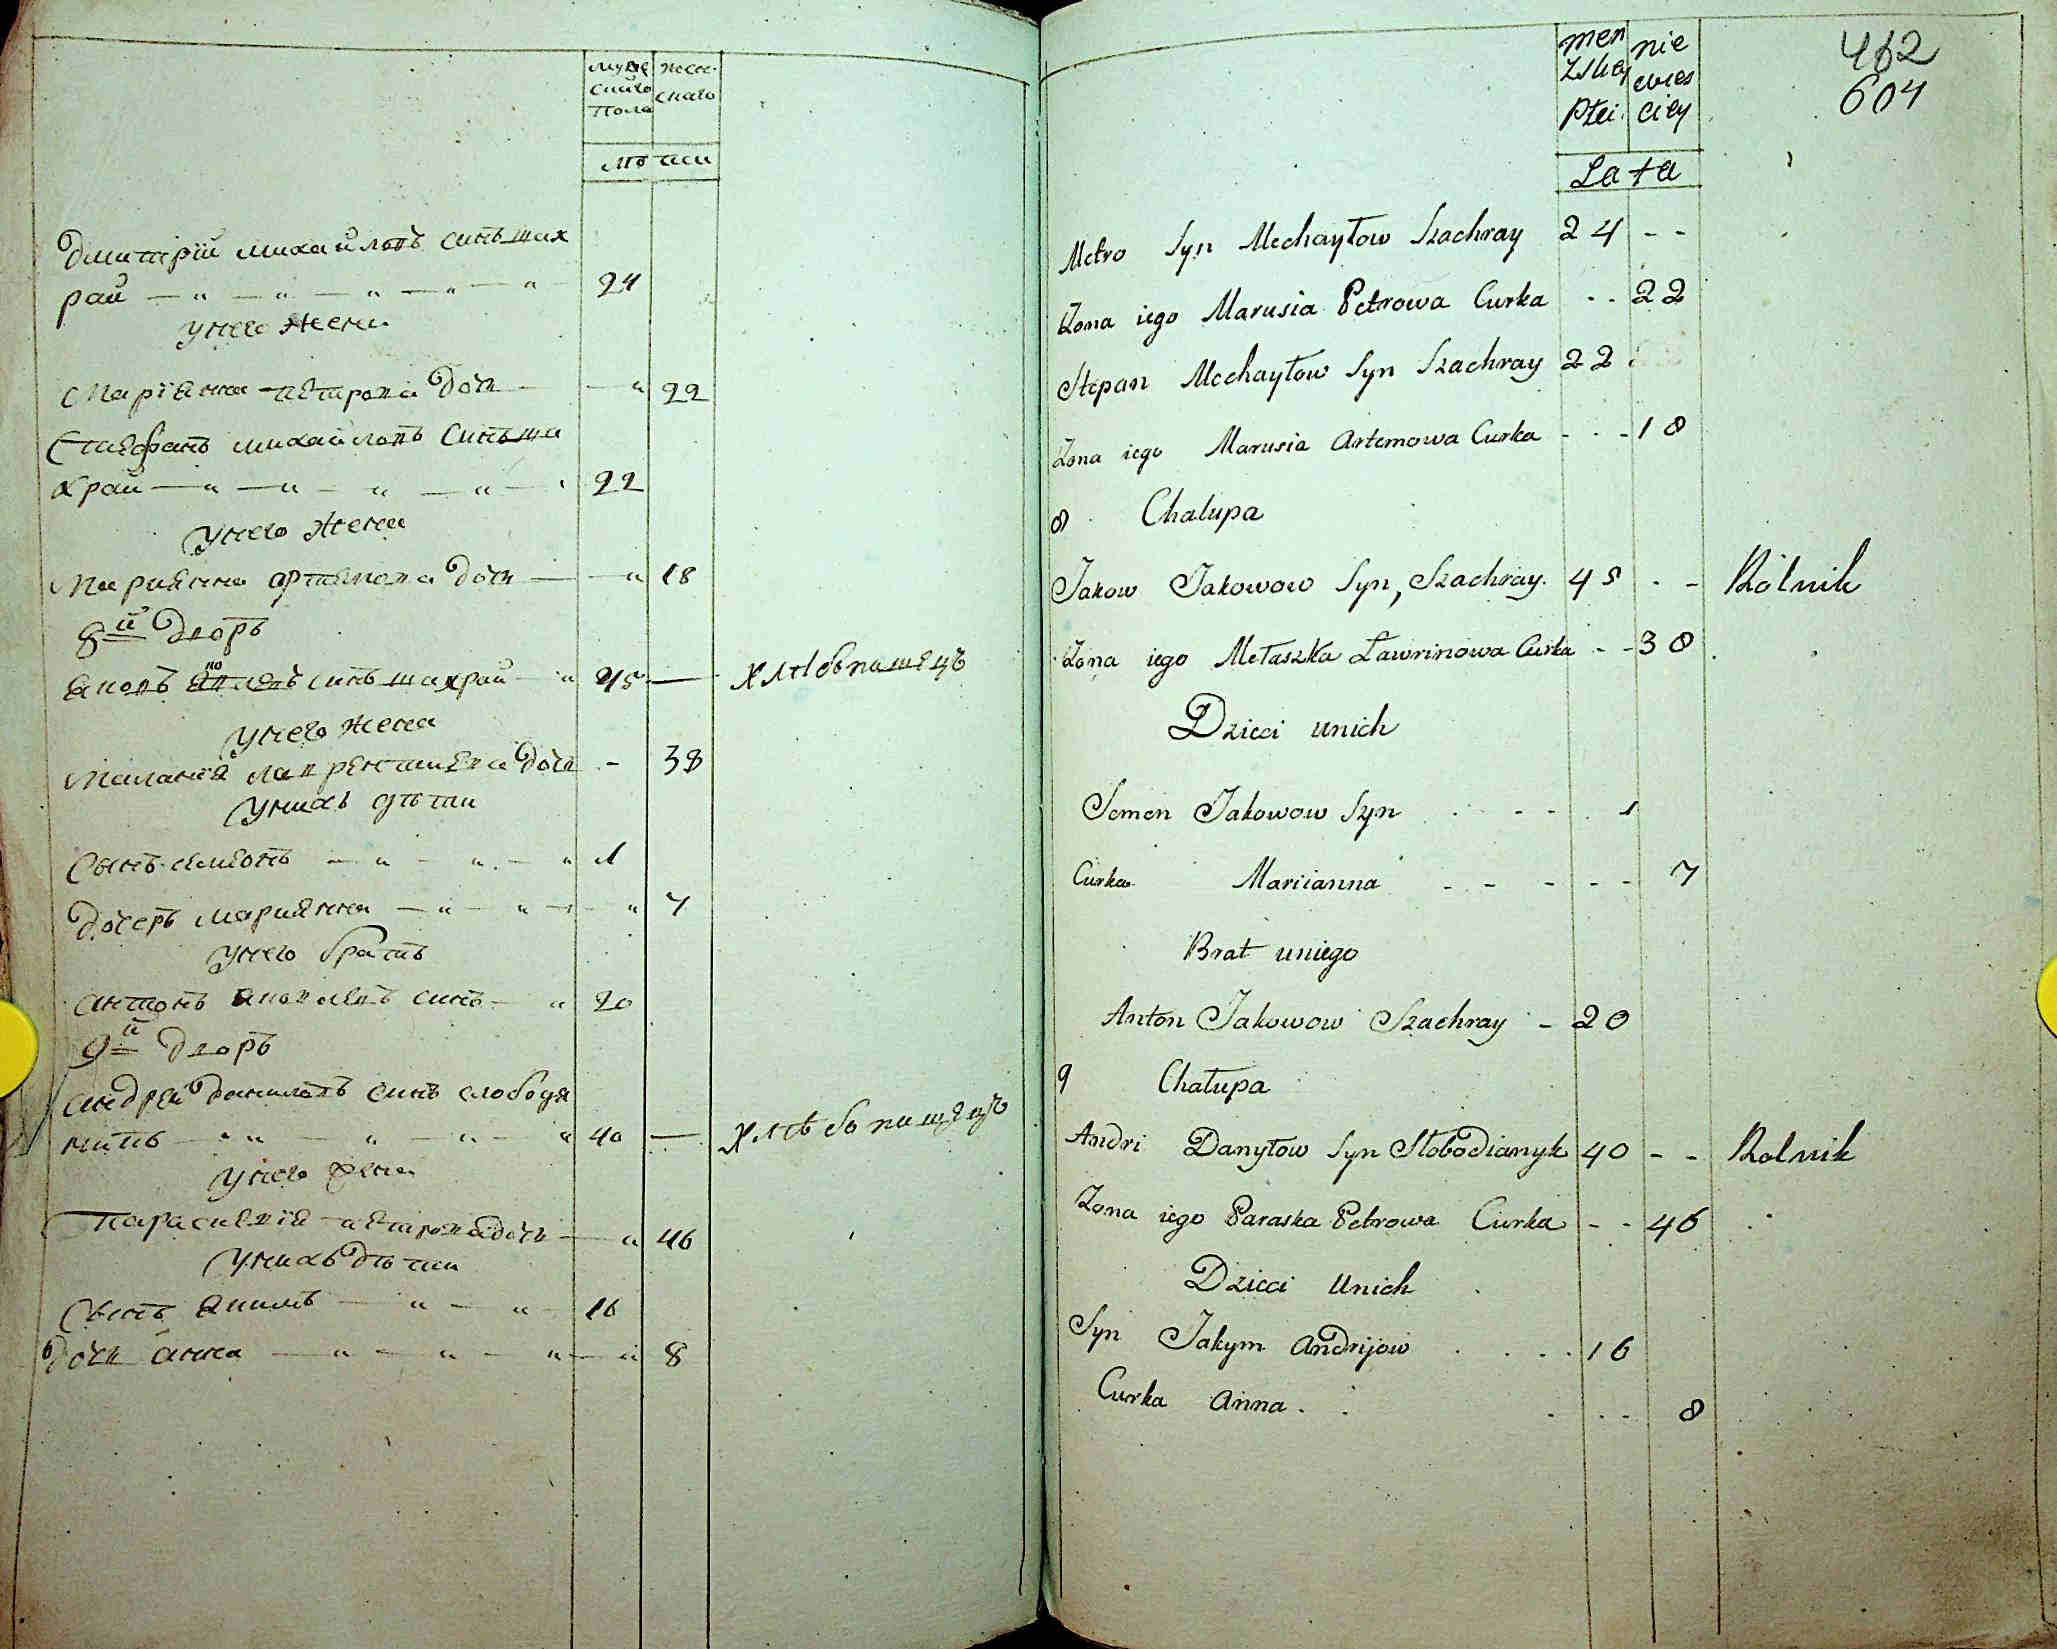 мужескаго пола
женскаго
лѣта
Дмитрій михайловъ синъ шах
рай — „ — „ — „ — „ — „ 24
у него жена
Маріянна петрова дочь — — „ 22
Стефанъ михайловъ синъ ша
храй — „ — „ — „ — „ — 22
у него жена
Мариянна артемова дочь — — „ 18
8й дворъ
яковъ яковлевъ синъ шахрай „ 45 — хлѣбопашецъ
у него жена
Маланія лаврентиева дочь - 38
у нихъ дѣти
Сынъ семіонъ — „ — „ — „ 1
дочерь мариянна — „ — „ — „ 7
у него братъ
антонъ яковлевъ синъ — „ 20
9й дворъ
андрей даниловъ синъ слободя
никъ — „ — „ — „ — „ 40 — хлѣбопашецъ
у него жена
Параскевія петрова дочь — „ 46
у нихъ дѣти
Сынъ якимъ — „ — „ — 16
дочь анна — „ — „ — „ — „ 8
462
604
menzskey Płci
niewiesciey
Lata
Metro Syn Mechayłow Szachray 24 - -
Żona iego Marusia Petrowa Curka - - 22
Stepan Mechayłow Syn Szachray 22
Żona iego Marusia Artemowa Curka - - - 18
8 Chalupa
Jakow Jakowow Syn, Szachray. 45 - - Rólnik
Żona iego Mełaszka Ławrinowa Curka - - 38
Dzieci unich
Semen Jakowow Syn - - - 1
Curka Mariianna - - - - - 7
Brat uniego
Anton Jakowow Szachray - 20
9 Chałupa
Andri Danyłow Syn Słobodianyk 40 - - Rolnik
Żona iego Paraska Petrowa Curka - - 46
Dzieci Unich
Syn Jakym Andrijow . . . . 16
Curka Anna . . . - - 8